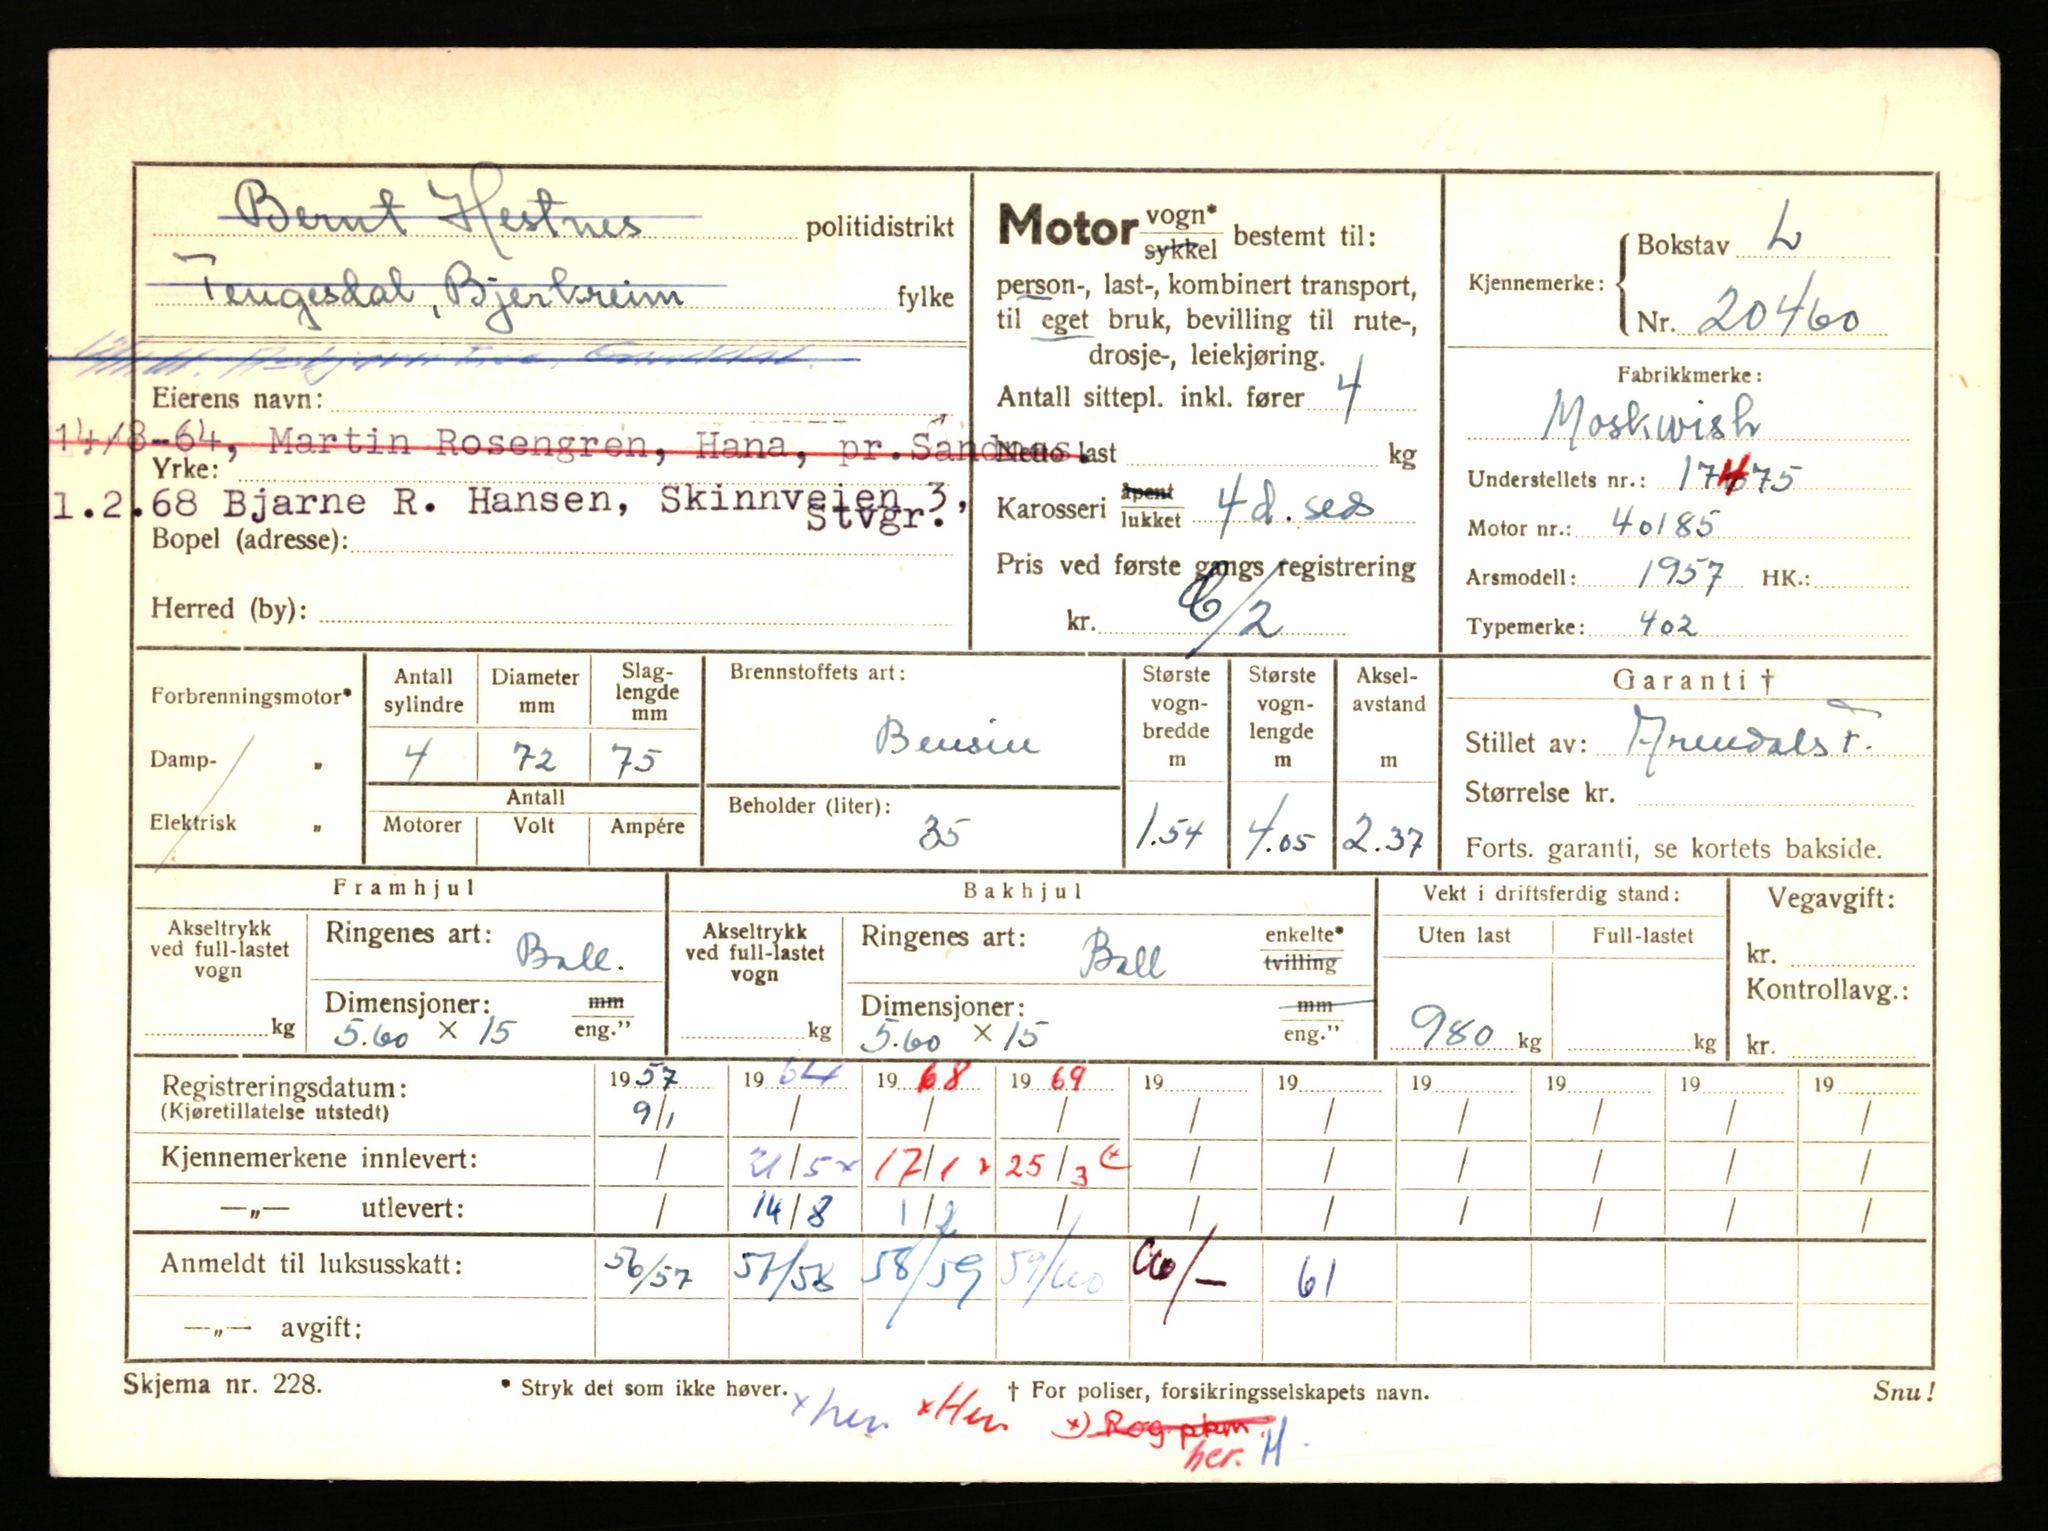 Bernt Hestnes politidistrikt
Tengesdal, Bjerkreim fylke
Eierens navn:
14/8-64, Martin Rosengren, Hana, pr. Sandnes.
Yrke:
1.2.68 Bjarne R. Hansen, Skinnveien 3,
Stvgr.
Bopel (adresse):
Herred (by):
Motor vogn* sykkel bestemt til:
person-, last-, kombinert transport,
til eget bruk, bevilling til rute-,
drosje-, leiekjøring.
Antall sittepl. inkl. fører 4
Netto last kg
Karosseri åpent lukket 4 d. sed
Pris ved første gangs registrering
kr.
Kjennemerke: Bokstav L
Nr. 20460
Fabrikkmerke:
Moskwish
Understellets nr.: 17475
Motor nr.: 40185
Arsmodell: 1957 HK.:
Typemerke: 402
Forbrenningsmotor*
Damp- "
Elektrisk "
Antall sylindre 4
Diameter mm 72
Slaglengde mm 75
Antall
Motorer Volt Ampére
Brennstoffets art:
Bensin
Beholder (liter):
35
Største vognbredde m 1.54
Største vognlengde m 4.05
Akselavstand m 2.37
Garanti †
Stillet av: Arendals F.
Størrelse kr.
Forts. garanti, se kortets bakside.
Framhjul
Akseltrykk ved full-lastet vogn kg
Ringenes art: Ball.
Dimensjoner: mm eng."
5.60 × 15
Bakhjul
Akseltrykk ved full-lastet vogn kg
Ringenes art: Ball enkelte* tvilling
Dimensjoner: mm eng."
5.60 × 15
Vekt i driftsferdig stand:
Uten last Full-lastet
980 kg kg
Vegavgift:
kr.
Kontrollavg.:
kr.
Registreringsdatum: 1957 1964 1968 1969 19 19 19 19 19 19
(Kjøretillatelse utstedt) 9/1 / / / / / / / / /
Kjennemerkene innlevert: / 21/5 x 17/1 x 25/3 (x / / / / / /
—„— utlevert: / 14/8 1/2 / / / / / / /
Anmeldt til luksusskatt: 56/57 57/58 58/59 59/60 60/— 61
—„— avgift:
Skjema nr. 228.
* Stryk det som ikke høver.
† For poliser, forsikringsselskapets navn.
Snu!
x her x Her x) Rog.
her. H.